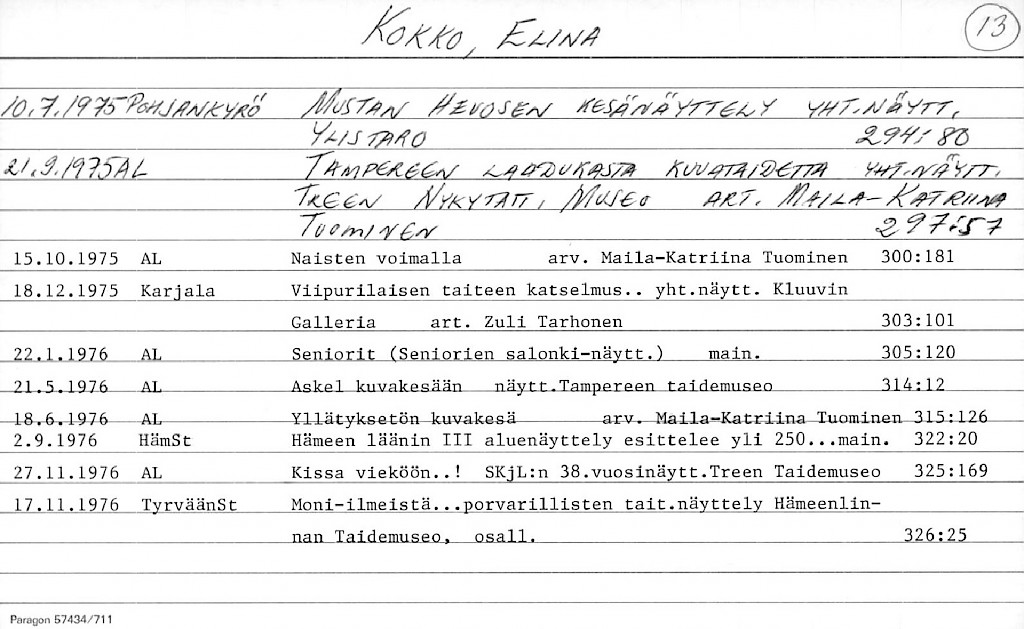 KOKKO, ELINA 13
10.7.1975 POHJANKYRÖ MUSTAN HEVOSEN KESÄNÄYTTELY YHT.NÄYTT.
YLISTARO 294:80
21.9.1975 AL TAMPEREEN LAADUKASTA KUVATAIDETTA YHT.NÄYTT.
TREEN NYKYTAIT. MUSEO ART. MAILA-KATRIINA
TUOMINEN 297:57
15.10.1975 AL Naisten voimalla arv. Maila-Katriina Tuominen 300:181
18.12.1975 Karjala Viipurilaisen taiteen katselmus.. yht.näytt. Kluuvin
Galleria art. Zuli Tarhonen 303:101
22.1.1976 AL Seniorit (Seniorien salonki-näytt.) main. 305:120
21.5.1976 AL Askel kuvakesään näytt.Tampereen taidemuseo 314:12
18.6.1976 AL Yllätyksetön kuvakesä arv. Maila-Katriina Tuominen 315:126
2.9.1976 HämSt Hämeen läänin III aluenäyttely esittelee yli 250...main. 322:20
27.11.1976 AL Kissa vieköön..! SKjL:n 38.vuosinäytt.Treen Taidemuseo 325:169
17.11.1976 TyrväänSt Moni-ilmeistä...porvarillisten tait.näyttely Hämeenlin-
nan Taidemuseo, osall. 326:25
Paragon 57434/711